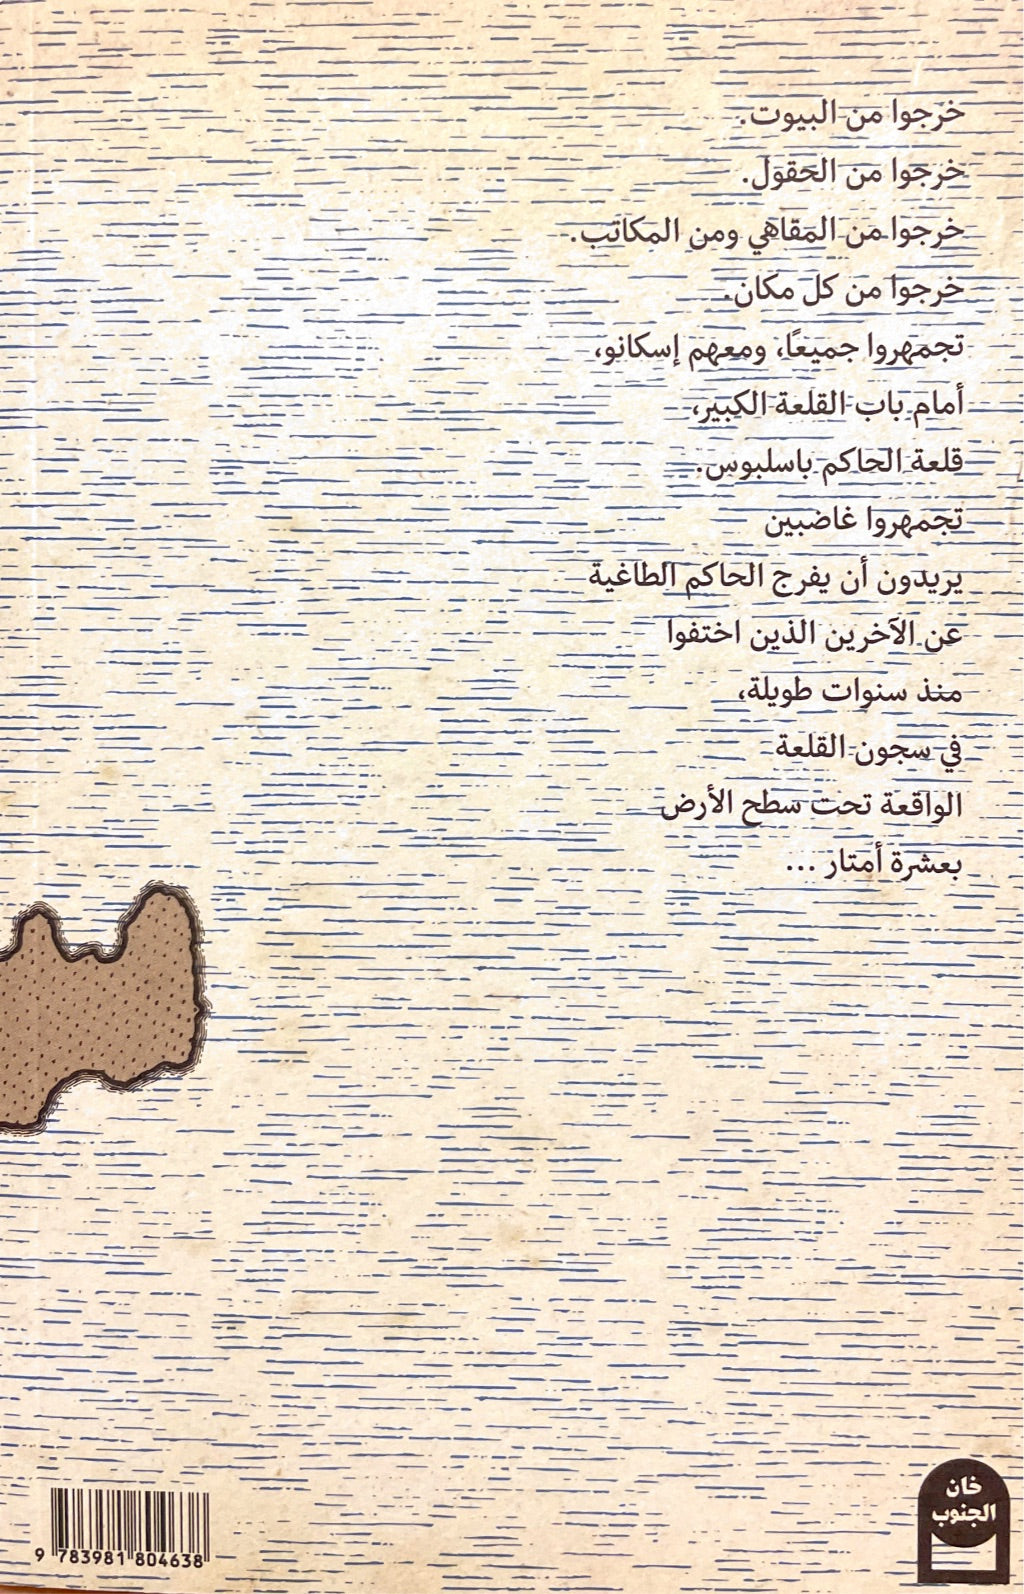 خرجوا من البيوت.
خرجوا من الحقول.
خرجوا من المقاهي ومن المكاتب.
خرجوا من كل مكان.
تجمهروا جميعًا، ومعهم إسكانو،
أمام باب القلعة الكبير،
قلعة الحاكم باسلبوس.
تجمهروا غاضبين
يريدون أن يفرج الحاكم الطاغية
عن الآخرين الذين اختفوا
منذ سنوات طويلة،
في سجون القلعة
الواقعة تحت سطح الأرض
بعشرة أمتار ...
خان
الجنوب
9 783981 804638